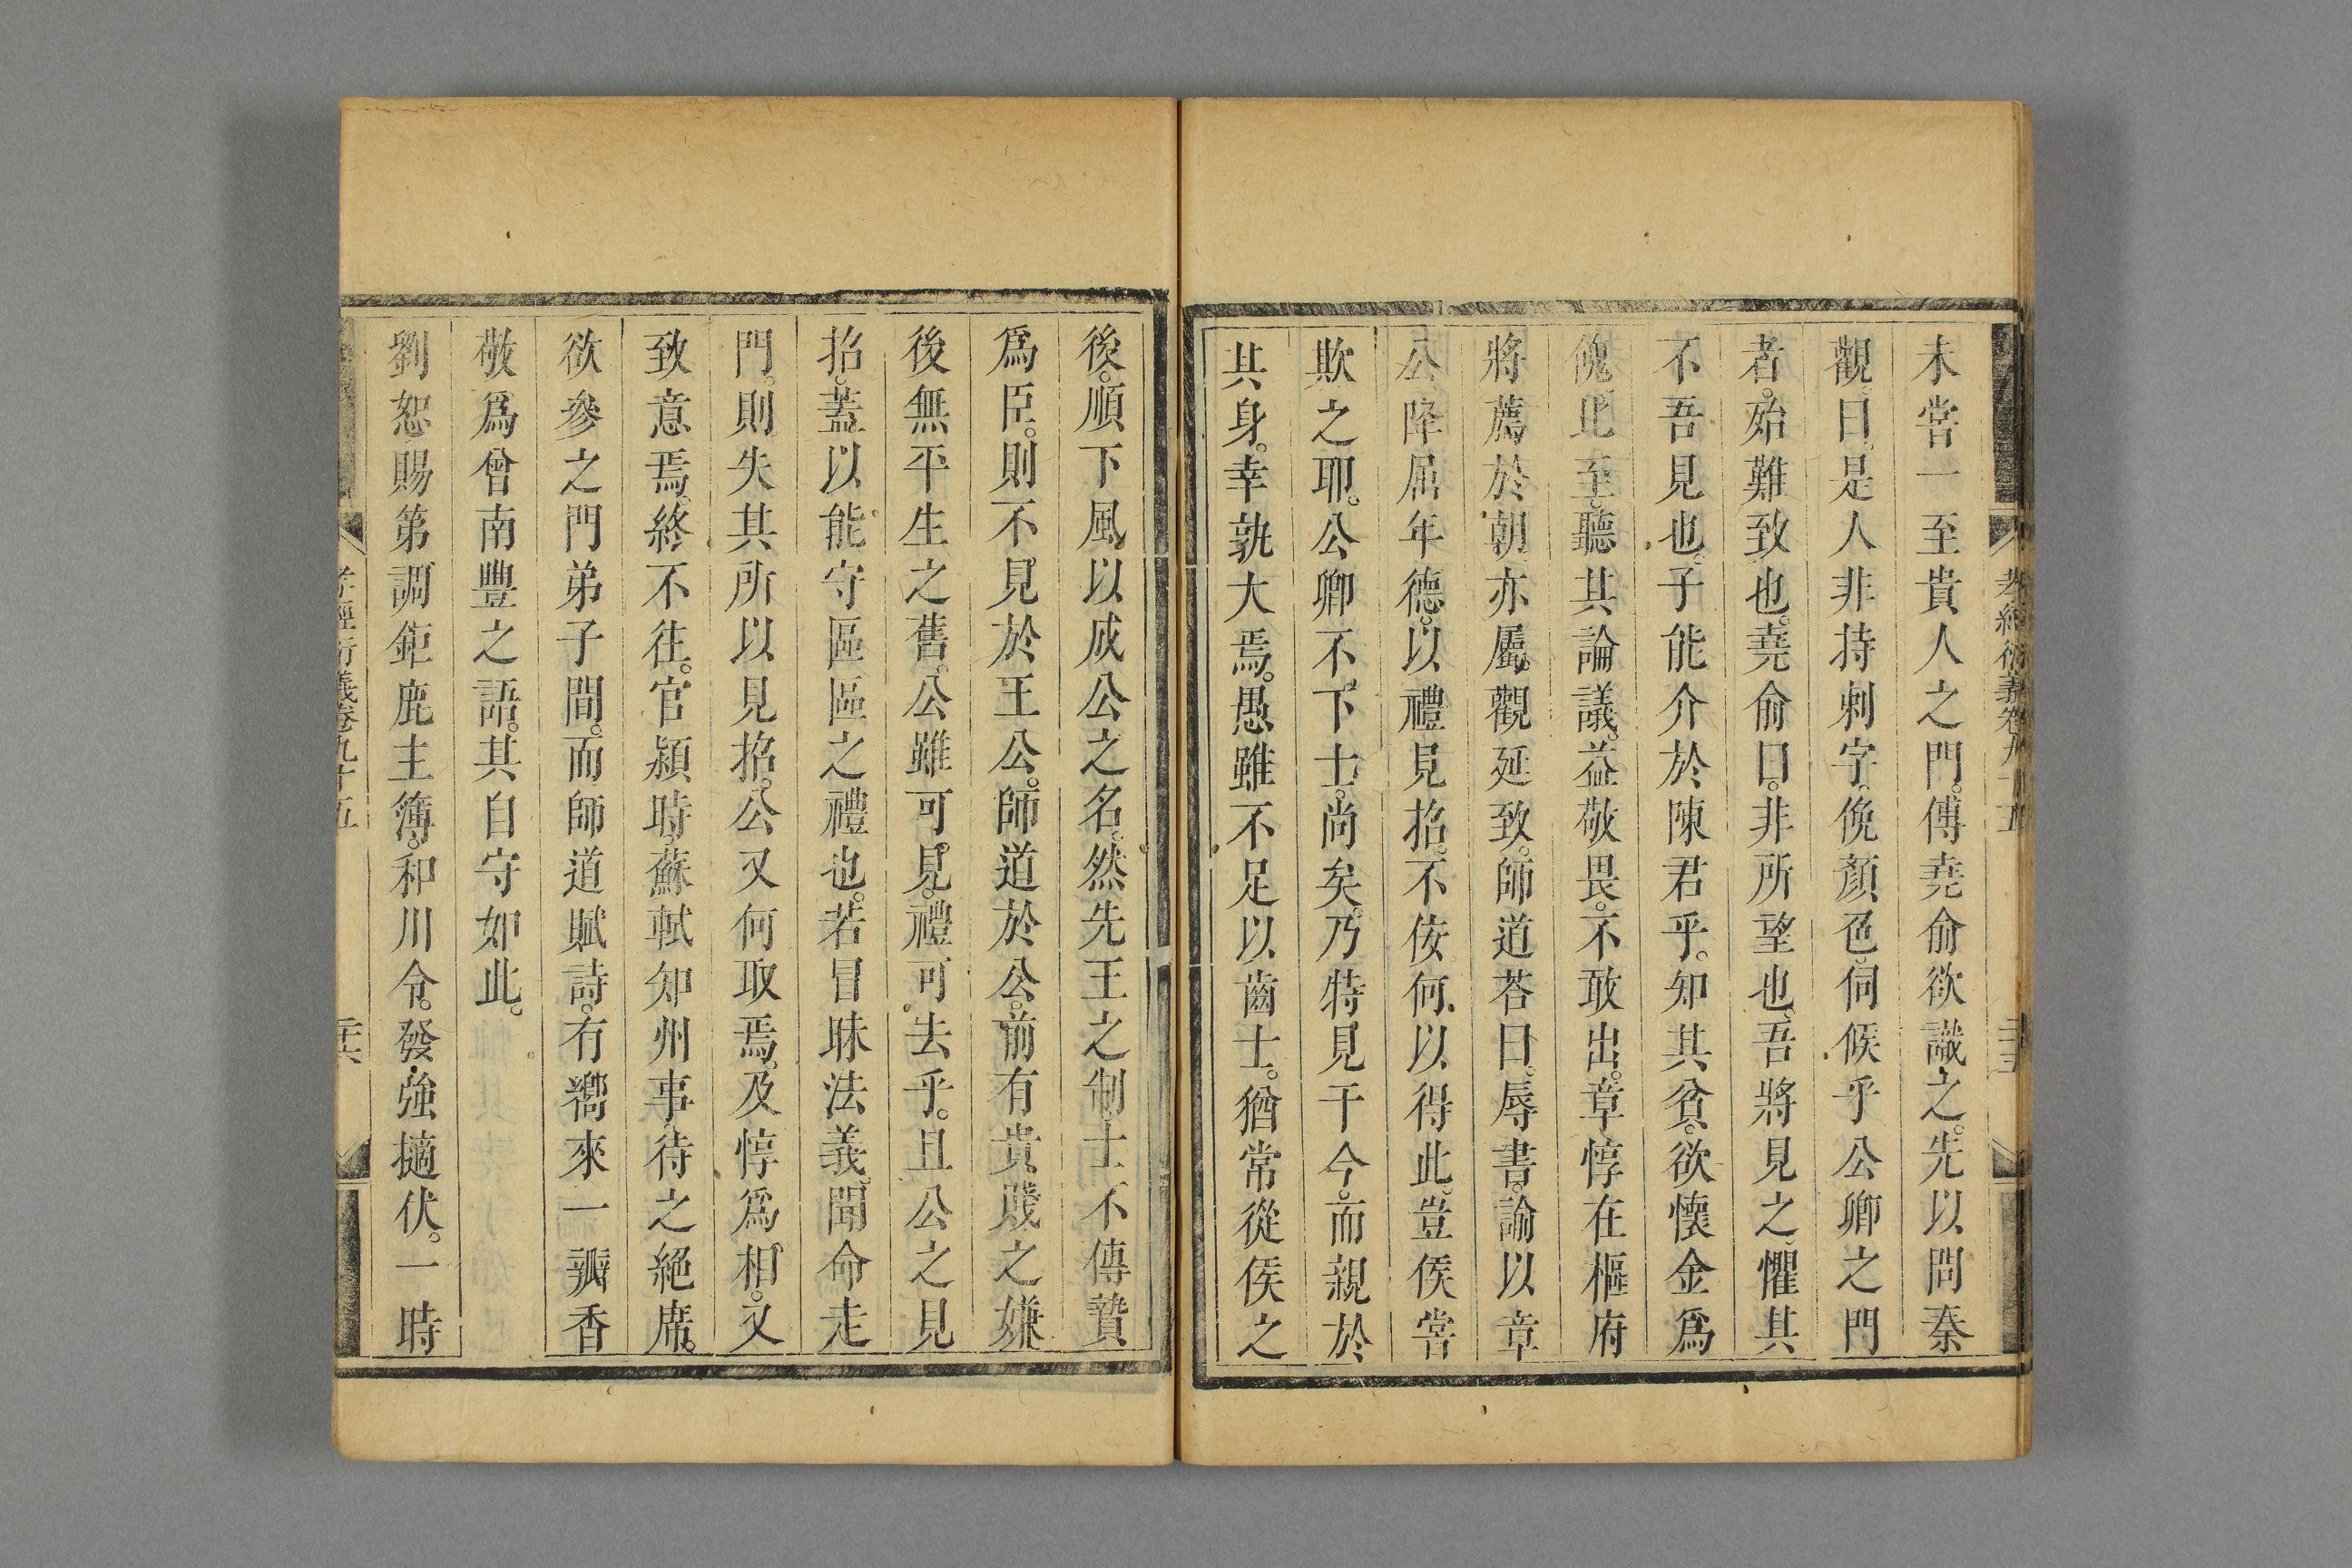 孝經衍義卷九十五 二十五
未嘗一至貴人之門。傅堯俞欲識之。先以問秦
觀。曰。是人非持刺字。俛顏色。伺候乎公卿之門
者。殆難致也。堯俞曰。非所望也。吾將見之。懼其
不吾見也。子能介於陳君乎。知其貧。欲懷金爲
餽。比至。聽其論議。益敬畏。不敢出。章惇在樞府
將薦於朝。亦屬觀延致。師道荅曰。辱書。諭以章
公降屈年德。以禮見招。不佞何以得此。豈侯嘗
欺之耶。公卿不下士。尚矣。乃特見于今。而親於
其身。幸孰大焉。愚雖不足以齒士。猶當從侯之
後。順下風以成公之名。然先王之制。士不傳贄
爲臣。則不見於王公。師道於公。前有貴賤之嫌
後無平生之舊。公雖可見。禮可去乎。且公之見
招。蓋以能守區區之禮也。若冒昧法義。聞命走
門。則失其所以見招。公又何取焉。及惇爲相。又
致意焉。終不往。官潁時。蘇軾知州事。待之絕席。
欲參之門弟子間。而師道賦詩。有嚮來一瓣香
敬爲曾南豐之語。其自守如此。
劉恕賜第調鉅鹿主簿。和川令。發強擿伏。一時
孝經衍義卷九十五 二十六